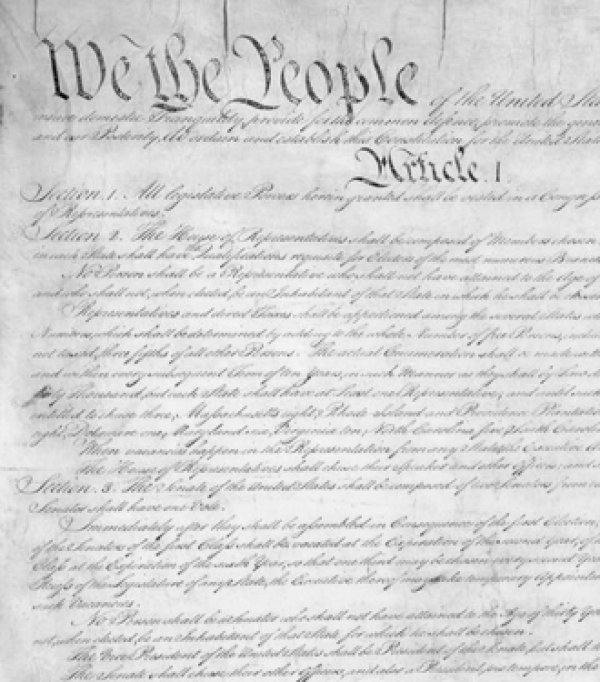 We the People of the United Sta
insure domestic Tranquility, provide for the common defence, promote the gene
and our Posterity, do ordain and establish this Constitution for the United State
Article. I.
Section. 1. All legislative Powers herein granted shall be vested in a Congress
of Representatives.
Section. 2. The House of Representatives shall be composed of Members chosen
in each State shall have Qualifications requisite for Electors of the most numerous Branch
No Person shall be a Representative who shall not have attained to the Age of
and who shall not, when elected, be an Inhabitant of that State in which he shall be chosen
Representatives and direct Taxes shall be apportioned among the several States wh
Numbers, which shall be determined by adding to the whole Number of free Persons, includ
not taxed, three fifths of all other Persons. The actual Enumeration shall be made with
and within every subsequent Term of ten Years, in such Manner as they shall by Law
thirty Thousand, but each State shall have at Least one Representative; and until such
entitled to chuse three, Massachusetts eight, Rhode Island and Providence Plantatio
eight, Delaware one, Maryland six, Virginia ten, North Carolina five, South Carolin
When vacancies happen in the Representation from any State, the Executive A
the House of Representatives shall chuse their Speaker and other Officers; and s
Section. 3. The Senate of the United States shall be composed of two Senators from ea
Senator shall have one Vote.
Immediately after they shall be assembled in Consequence of the first Election,
of the Senators of the first Class shall be vacated at the Expiration of the second Year, of
Class at the Expiration of the sixth Year, so that one third may be chosen every second Year
Recess of the Legislature of any State, the Executive thereof may make temporary Appointm
such Vacancies.
No Person shall be a Senator who shall not have attained to the Age of thirty Years
not, when elected, be an Inhabitant of that State for which he shall be chosen.
The Vice President of the United States shall be President of the Senate, but shall h
The Senate shall chuse their other Officers, and also a President pro tempore, in the